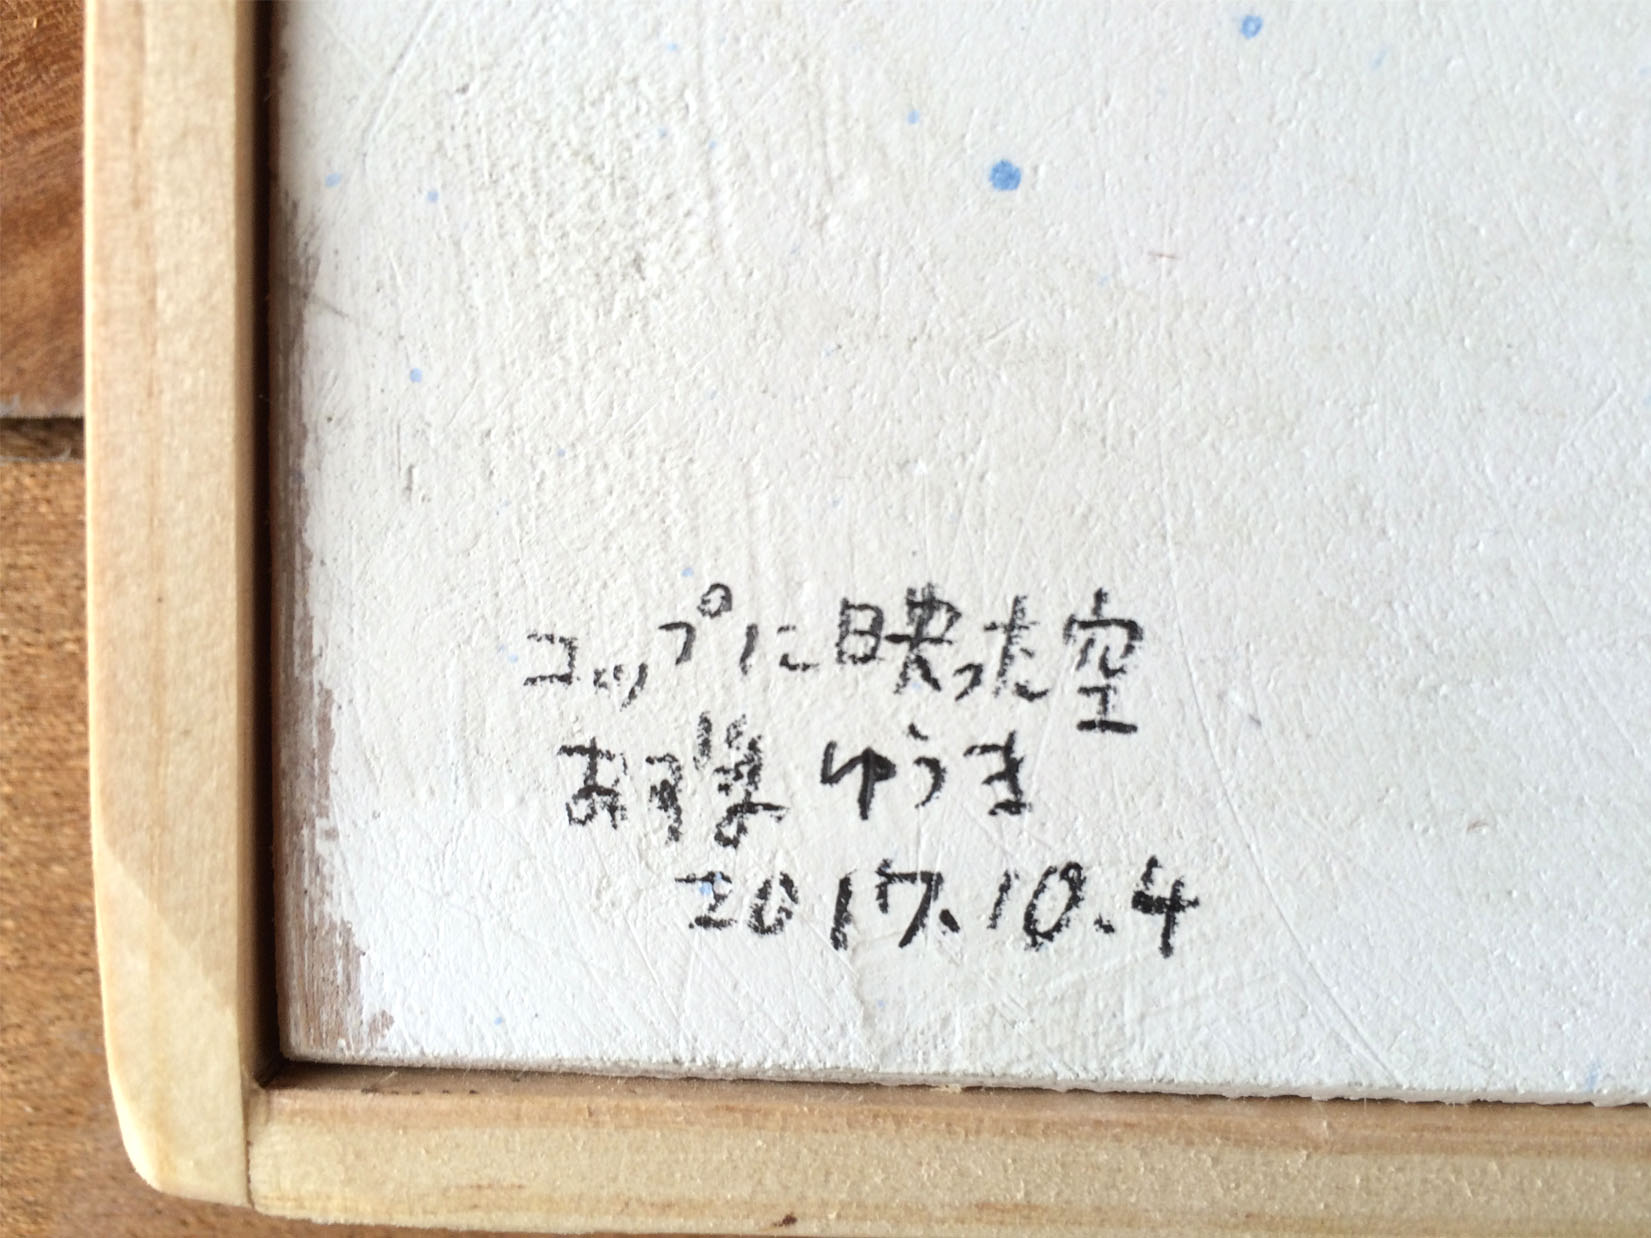 コップに映った空
おづま ゆうま
2017.10.4